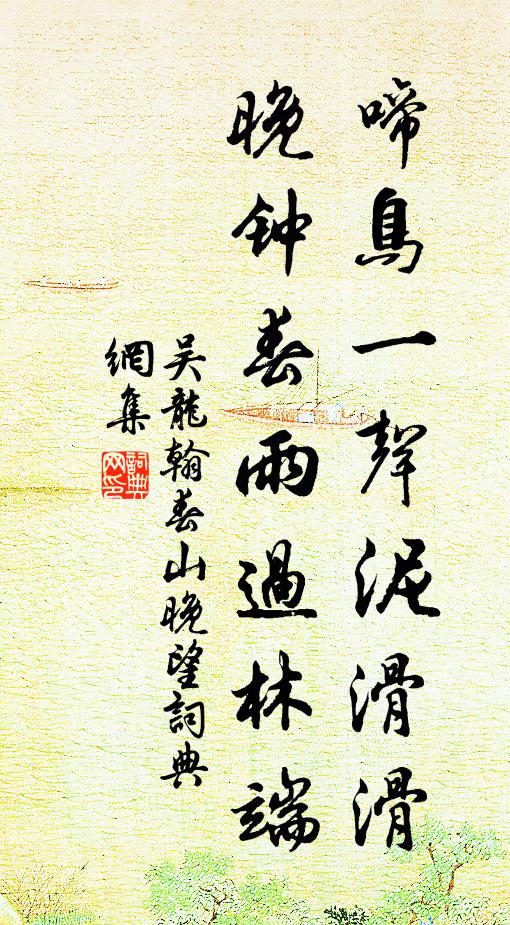 啼鳥一聲泥滑滑
晚钟春雨過林端
吴龍翰春山晚望詞典
網集
詞典
网印